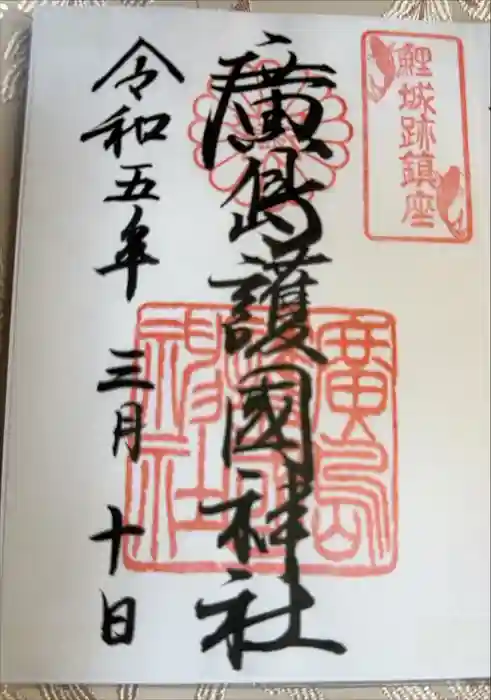 鯉城跡鎮座
廣島護國神社
廣島護國神社
令和五年三月十日